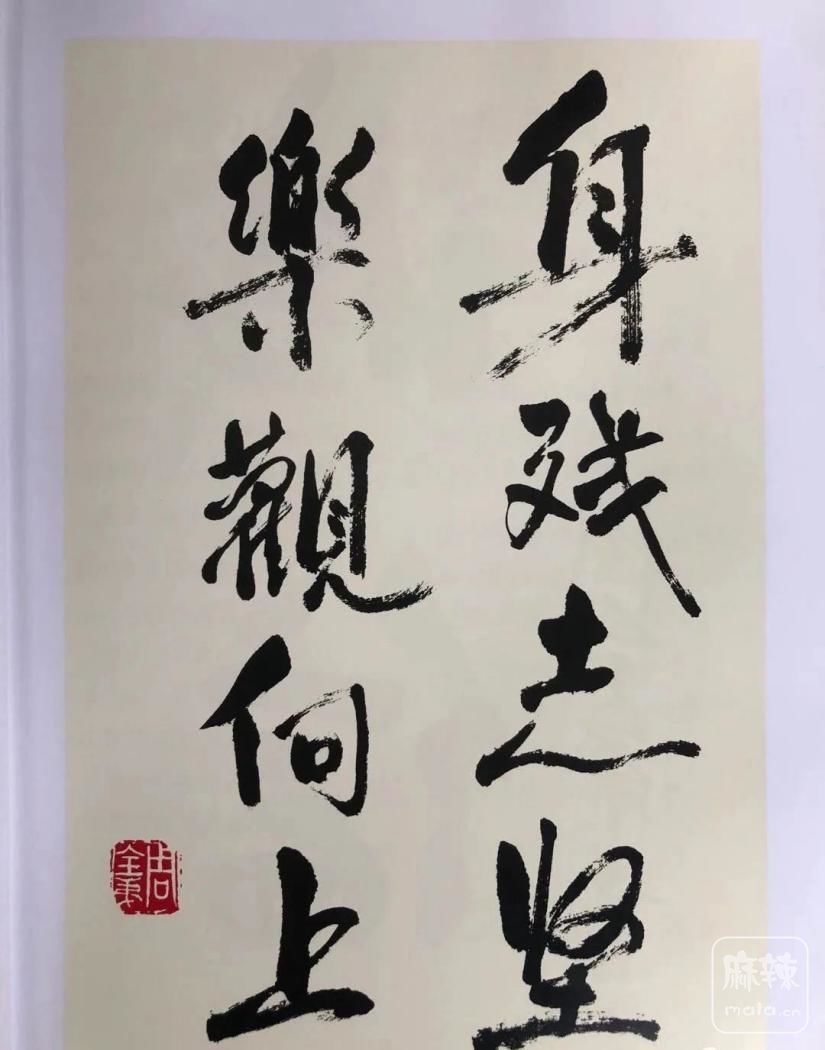 身残志坚
樂觀向上
麻辣
mala.cn